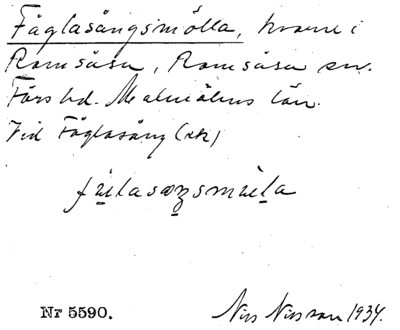 Fåglasångsmölla, kvarn i
Ramsåsa, Ramsåsa sn.
Färs hd. Malmöhus län.
Vid Fåglasång (sk)
Nr 5590.
Nils Nilsson 1934.